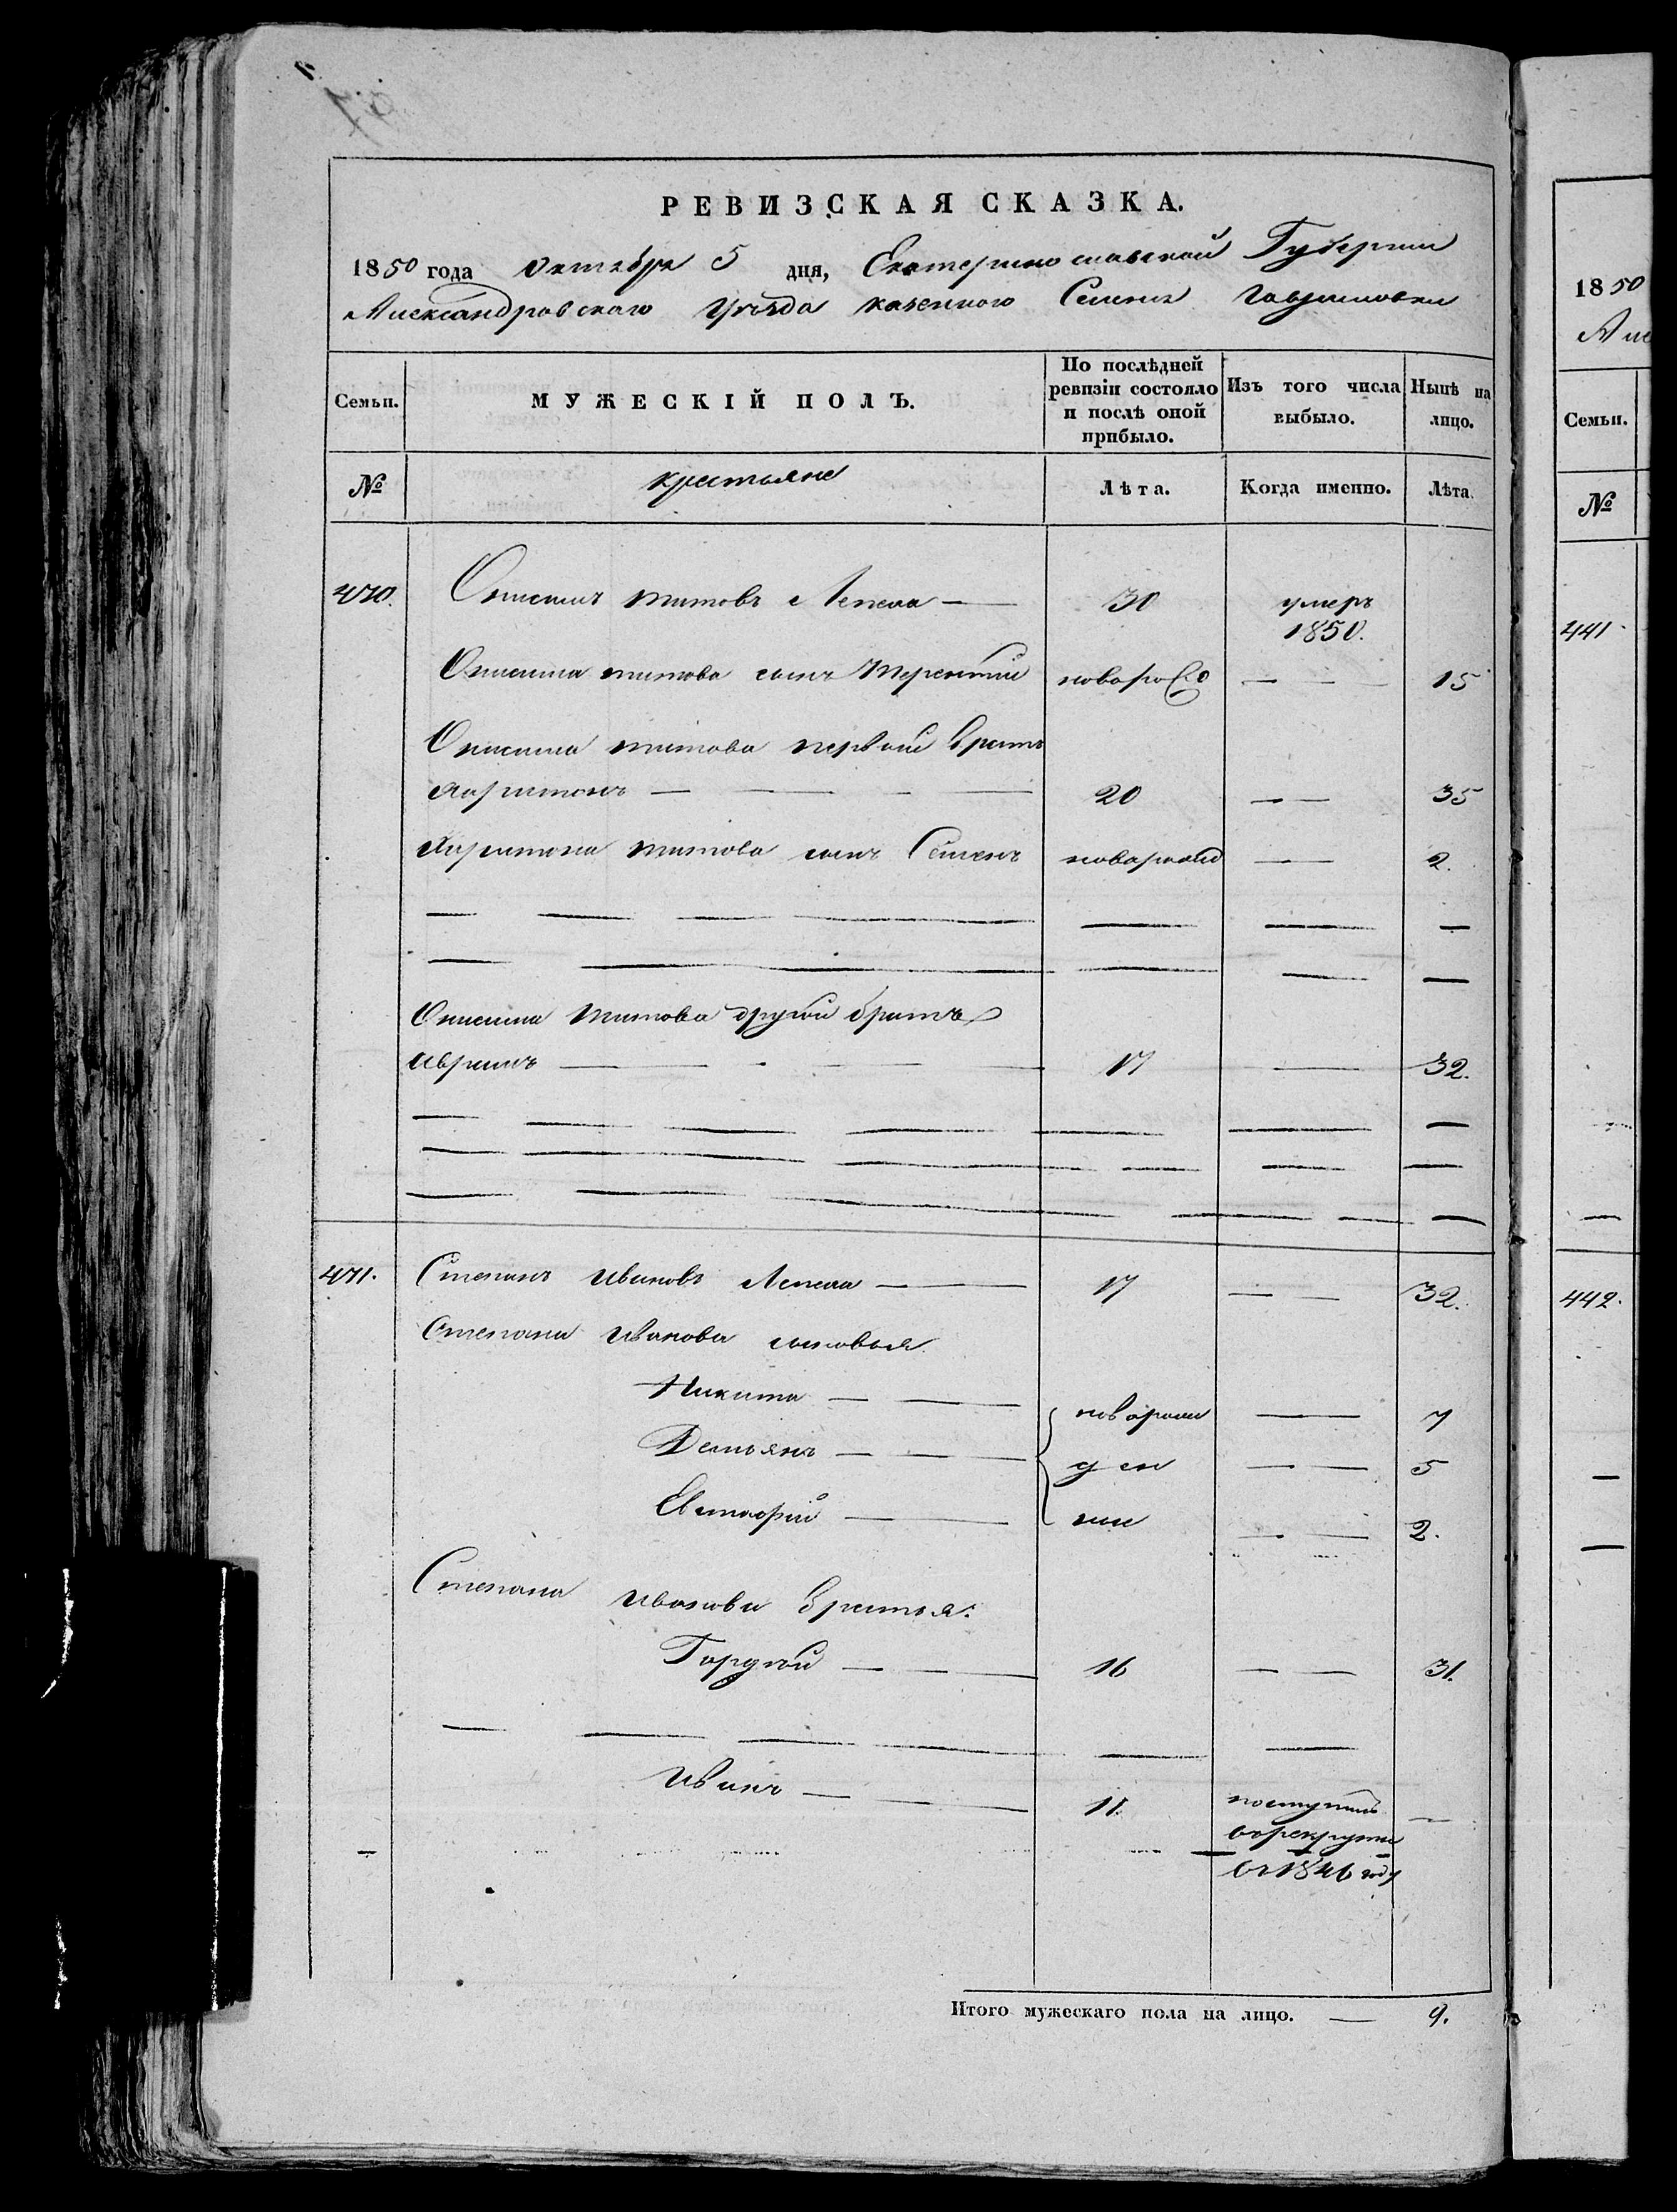 РЕВИЗСКАЯ СКАЗКА.
1850 года Октября 5 дня, Екатеринославской Губернии
Александровского Уѣзда казенного Селения Гавриловки
Семьи.
МУЖЕСКІЙ ПОЛЪ.
По послѣдней ревизіи состояло и послѣ оной прибыло.
Изъ того числа выбыло.
Нынѣ на лицо.
№
крестьяне
Лѣта.
Когда именно.
Лѣта.
470. Онисимъ титовъ Лепеха — 30 умеръ
1850.
Онисима титова сынъ Терентий новорожд — — 15
Онисима титова первой братъ
Харитонъ — 20 — — 35
Харитона титова сынъ Семенъ новорожд — — 2.
Онисима титова другой братъ
Аврамъ — 17 — 32.
471. Степанъ Ивановъ Лепеха — 17 — — 32.
Степана Иванова сыновья
Никита — — новорож — 7
Демьянъ — — ден — — 5
Евстафій — ные — — 2.
Степана Иванова братья:
Гордѣй — — 16 — — 31.
Иванъ — — 11. поступилъ —
в рекруты
въ 1846 году
Итого мужескаго пола на лицо. — 9.
1850
Але
Семьи.
№
441.
442.